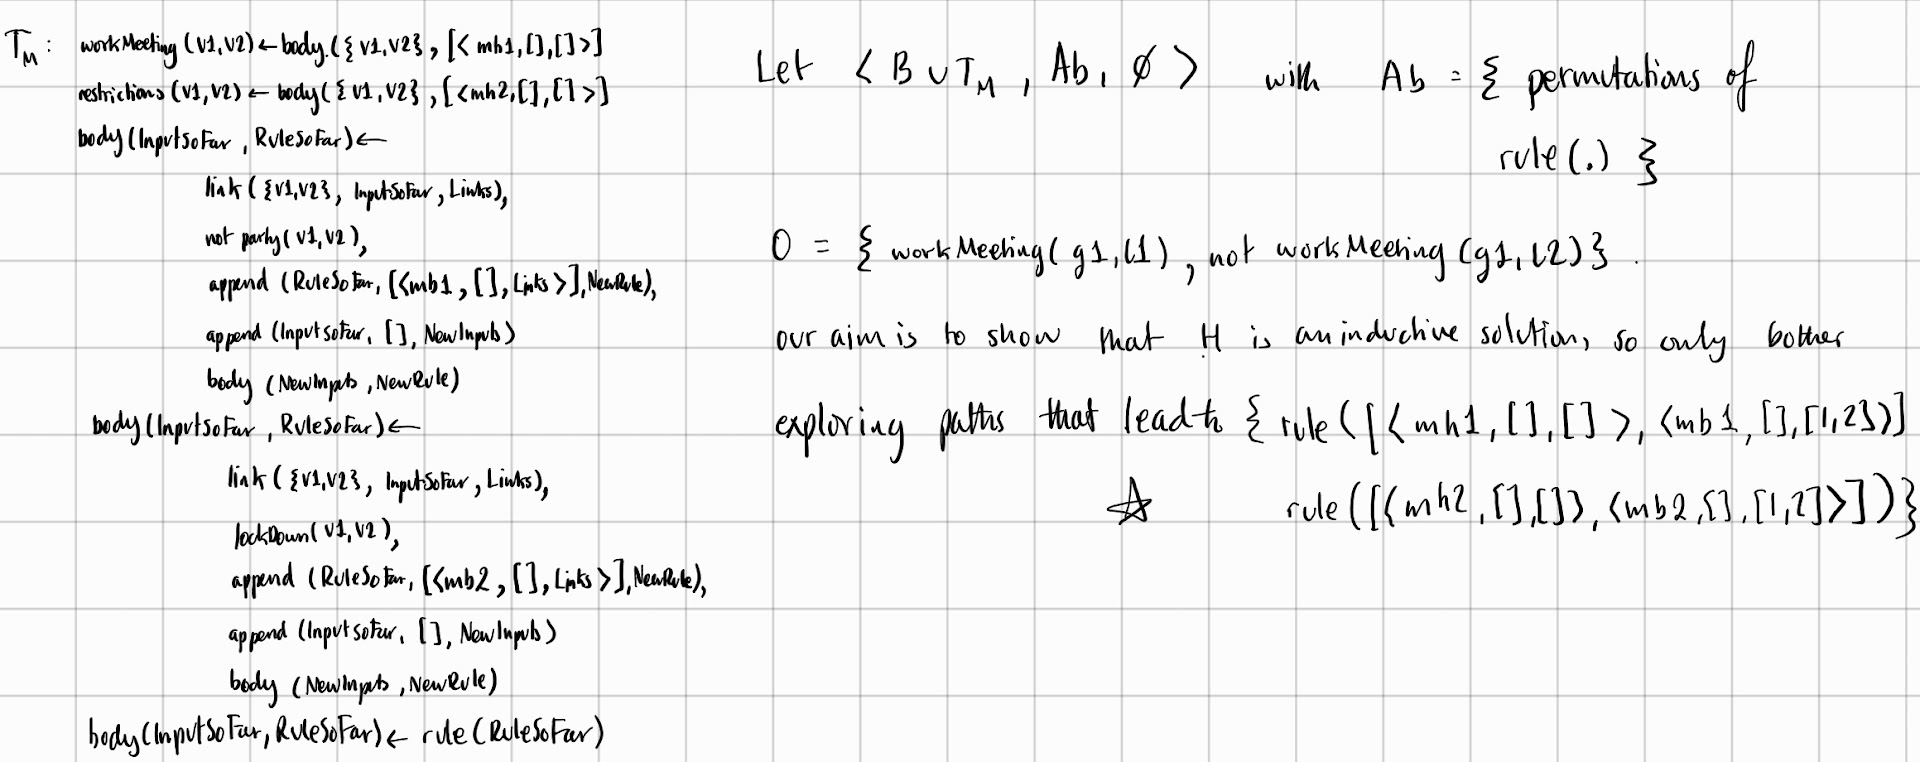 T_M : workMeeting (V1,V2) ← body.({V1,V2}, [<mh1,[],[]>]
restrictions (V1,V2) ← body({V1,V2}, [<mh2,[],[]>]
body(InputSoFar, RuleSoFar) ←
link({V1,V2}, InputSoFar, Links),
not party(V1,V2),
append (RuleSoFar, [<mb1, [], Links>], NewRule),
append (InputSoFar, [], NewInputs)
body (NewInputs, NewRule)
body(InputSoFar, RuleSoFar) ←
link({V1,V2}, InputSoFar, Links),
lockDown(V1,V2),
append (RuleSoFar, [<mb2, [], Links>], NewRule),
append (InputSoFar, [], NewInputs)
body (NewInputs, NewRule)
body(InputSoFar, RuleSoFar) ← rule(RuleSoFar)
Let < B ∪ T_M, Ab, ∅ > with Ab = { permutations of
rule(.) }
O = { workMeeting(g1,l1), not workMeeting(g1,l2)}.
our aim is to show that H is an inductive solution, so only bother
exploring paths that lead to { rule([<mh1,[],[]>, <mb1,[],[1,2]>]
☆ rule([<mh2,[],[]>, <mb2,[],[1,2]>])}